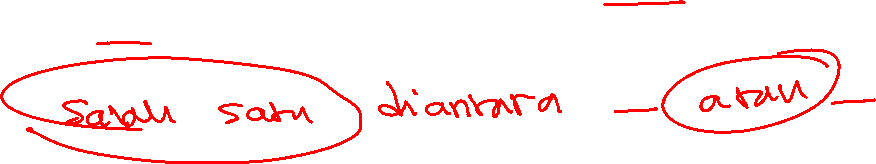 salah satu diantara — atau —